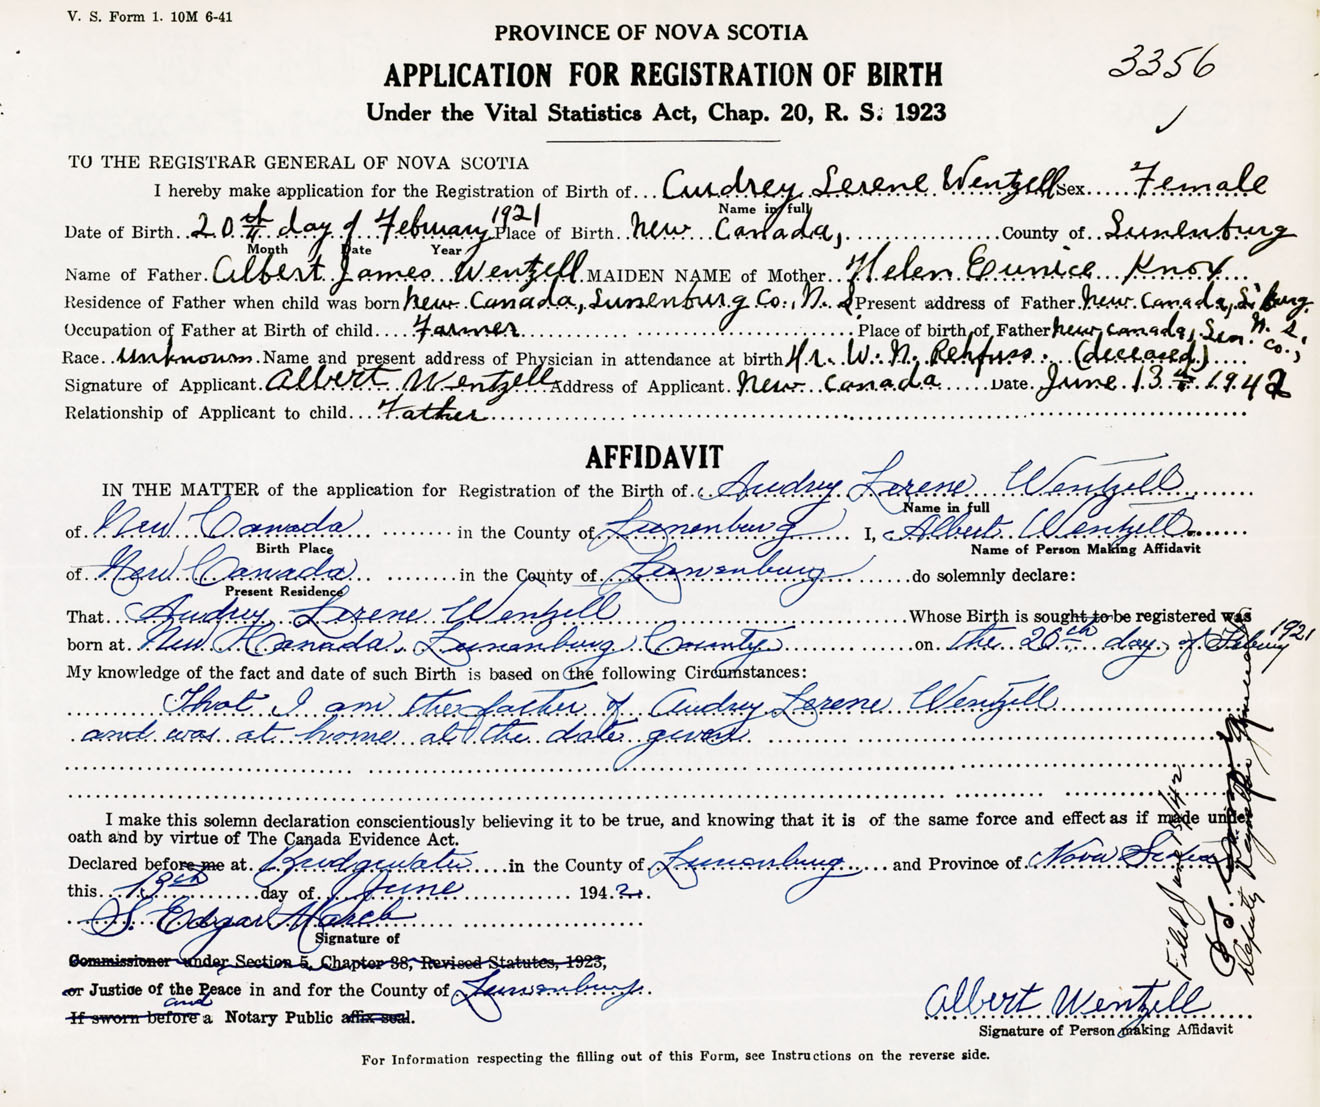 V. S. Form 1. 10M 6-41
PROVINCE OF NOVA SCOTIA
3356
APPLICATION FOR REGISTRATION OF BIRTH
Under the Vital Statistics Act, Chap. 20, R. S. 1923
TO THE REGISTRAR GENERAL OF NOVA SCOTIA
I hereby make application for the Registration of Birth of Audrey Lerene Wentzell Sex Female
Name in full
Date of Birth 20th day of February 1921 Place of Birth New Canada, County of Lunenburg
Month Date Year
Name of Father Albert James Wentzell MAIDEN NAME of Mother Helen Eunice Knox
Residence of Father when child was born New Canada, Lunenburg Co., N. S. Present address of Father New Canada, L'burg
Occupation of Father at Birth of child Farmer Place of birth of Father New Canada, Lun. Co., N. S.
Race Unknown Name and present address of Physician in attendance at birth Dr. W. N. Rehfuss (deceased)
Signature of Applicant Albert Wentzell Address of Applicant New Canada Date June 13th 1942
Relationship of Applicant to child Father
AFFIDAVIT
IN THE MATTER of the application for Registration of the Birth of Audrey Lerene Wentzell
Name in full
of New Canada in the County of Lunenburg I, Albert Wentzell
Birth Place Name of Person Making Affidavit
of New Canada in the County of Lunenburg do solemnly declare:
Present Residence
That Audrey Lerene Wentzell Whose Birth is sought to be registered was
born at New Canada, Lunenburg County on the 20th day of February 1921
My knowledge of the fact and date of such Birth is based on the following Circumstances:
That I am the father of Audrey Lerene Wentzell
and was at home at the date given
I make this solemn declaration conscientiously believing it to be true, and knowing that it is of the same force and effect as if made under
oath and by virtue of The Canada Evidence Act.
Declared before me at Bridgewater in the County of Lunenburg and Province of Nova Scotia
this 13th day of June 1942
S. Edgar March
Signature of
Commissioner under Section 5, Chapter 38, Revised Statutes, 1923,
or Justice of the Peace in and for the County of Lunenburg
and
If sworn before a Notary Public affix seal.
Albert Wentzell
Signature of Person making Affidavit
For Information respecting the filling out of this Form, see Instructions on the reverse side.
Filed June 15/42
Deputy Registrar General